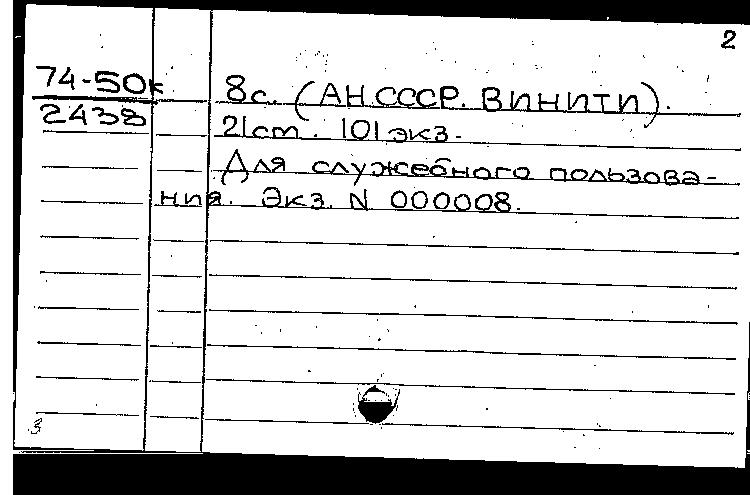 2
74-50к
2438
8с. (АН СССР. ВИНИТИ).
21см. 101 экз.
Для служебного пользова-
ния. Экз. N 000008.
3